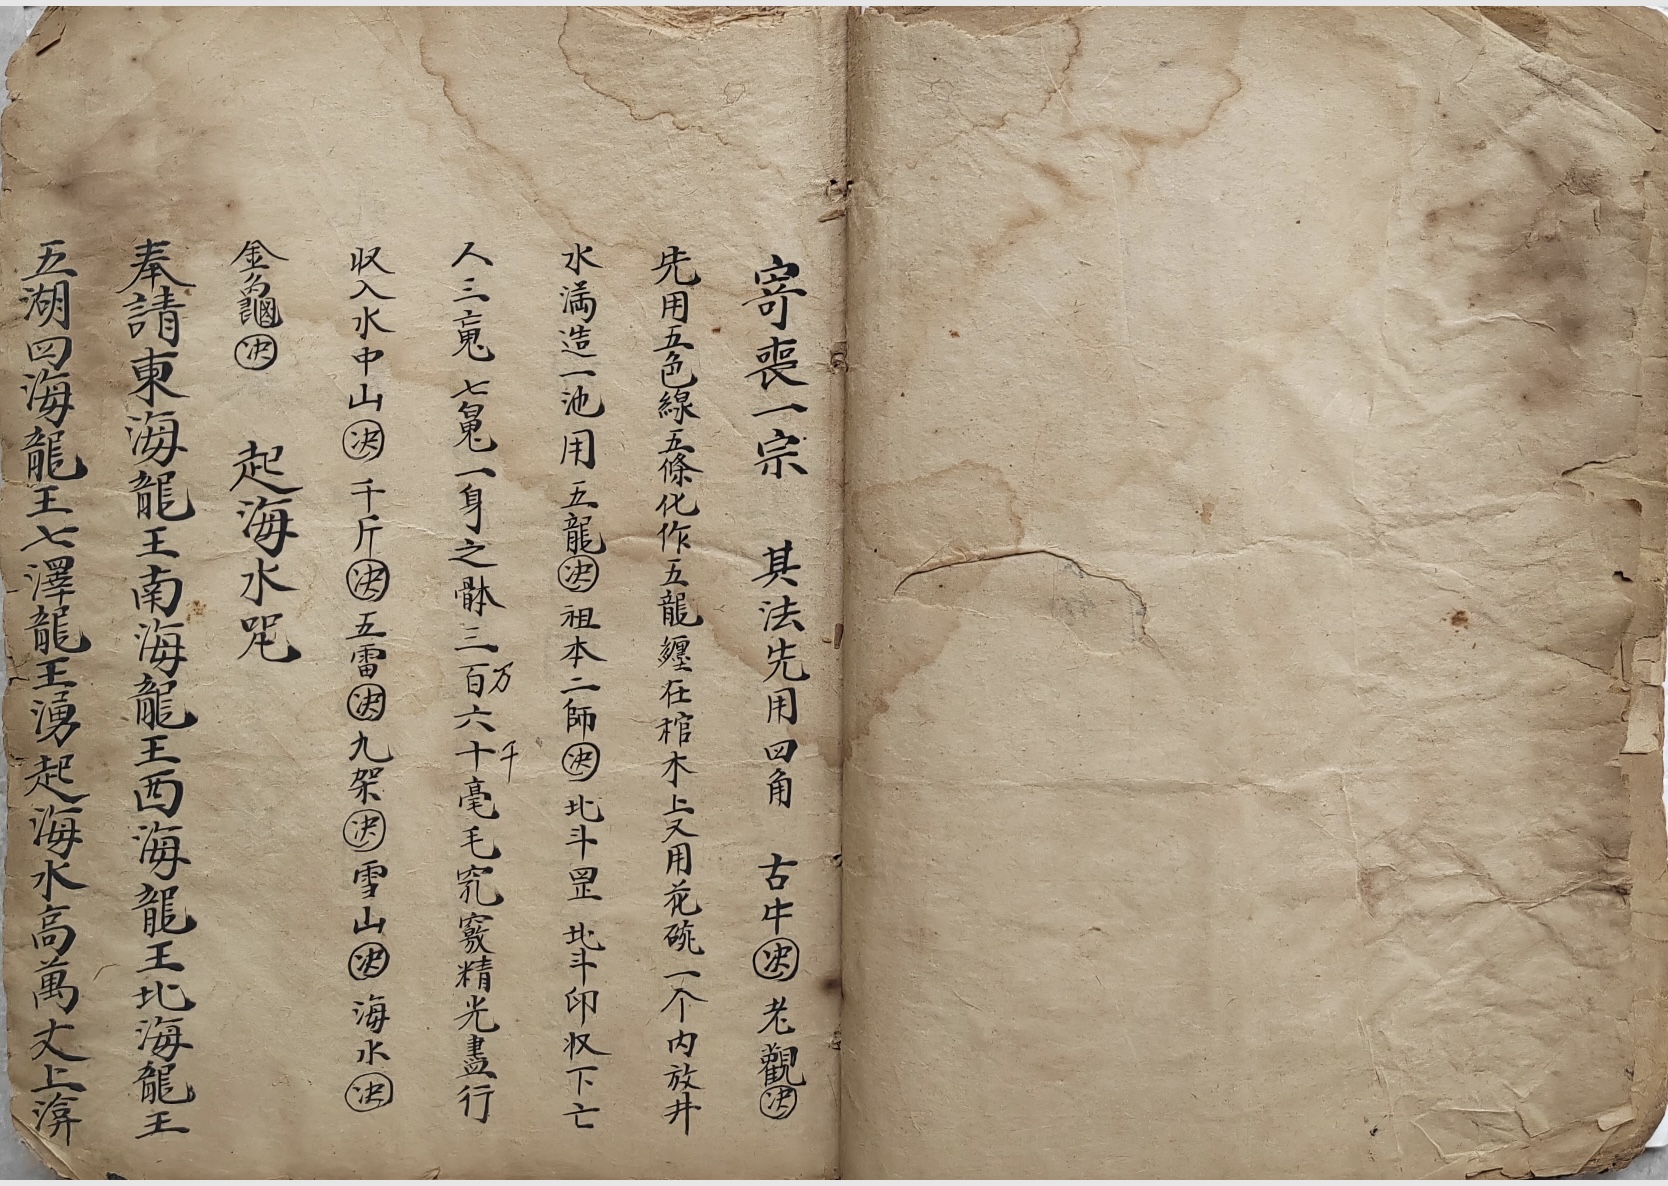 寄喪一宗 其法先用四角 古牛決 老觀決
先用五色線五條化作五龍纏在棺木上又用花碗一个内放井
水满造一池用五龍決祖本二師決北斗罡北斗印収下亡
人三魂七魄一身之骵三百万六十千毫毛窍竅精光盡行
収入水中山決千斤決五雷決九架決雪山決海水決
金 決 起海水咒
奉請東海龍王南海龍王西海龍王北海龍王
五湖四海龍王七澤龍王湧起海水高萬丈上